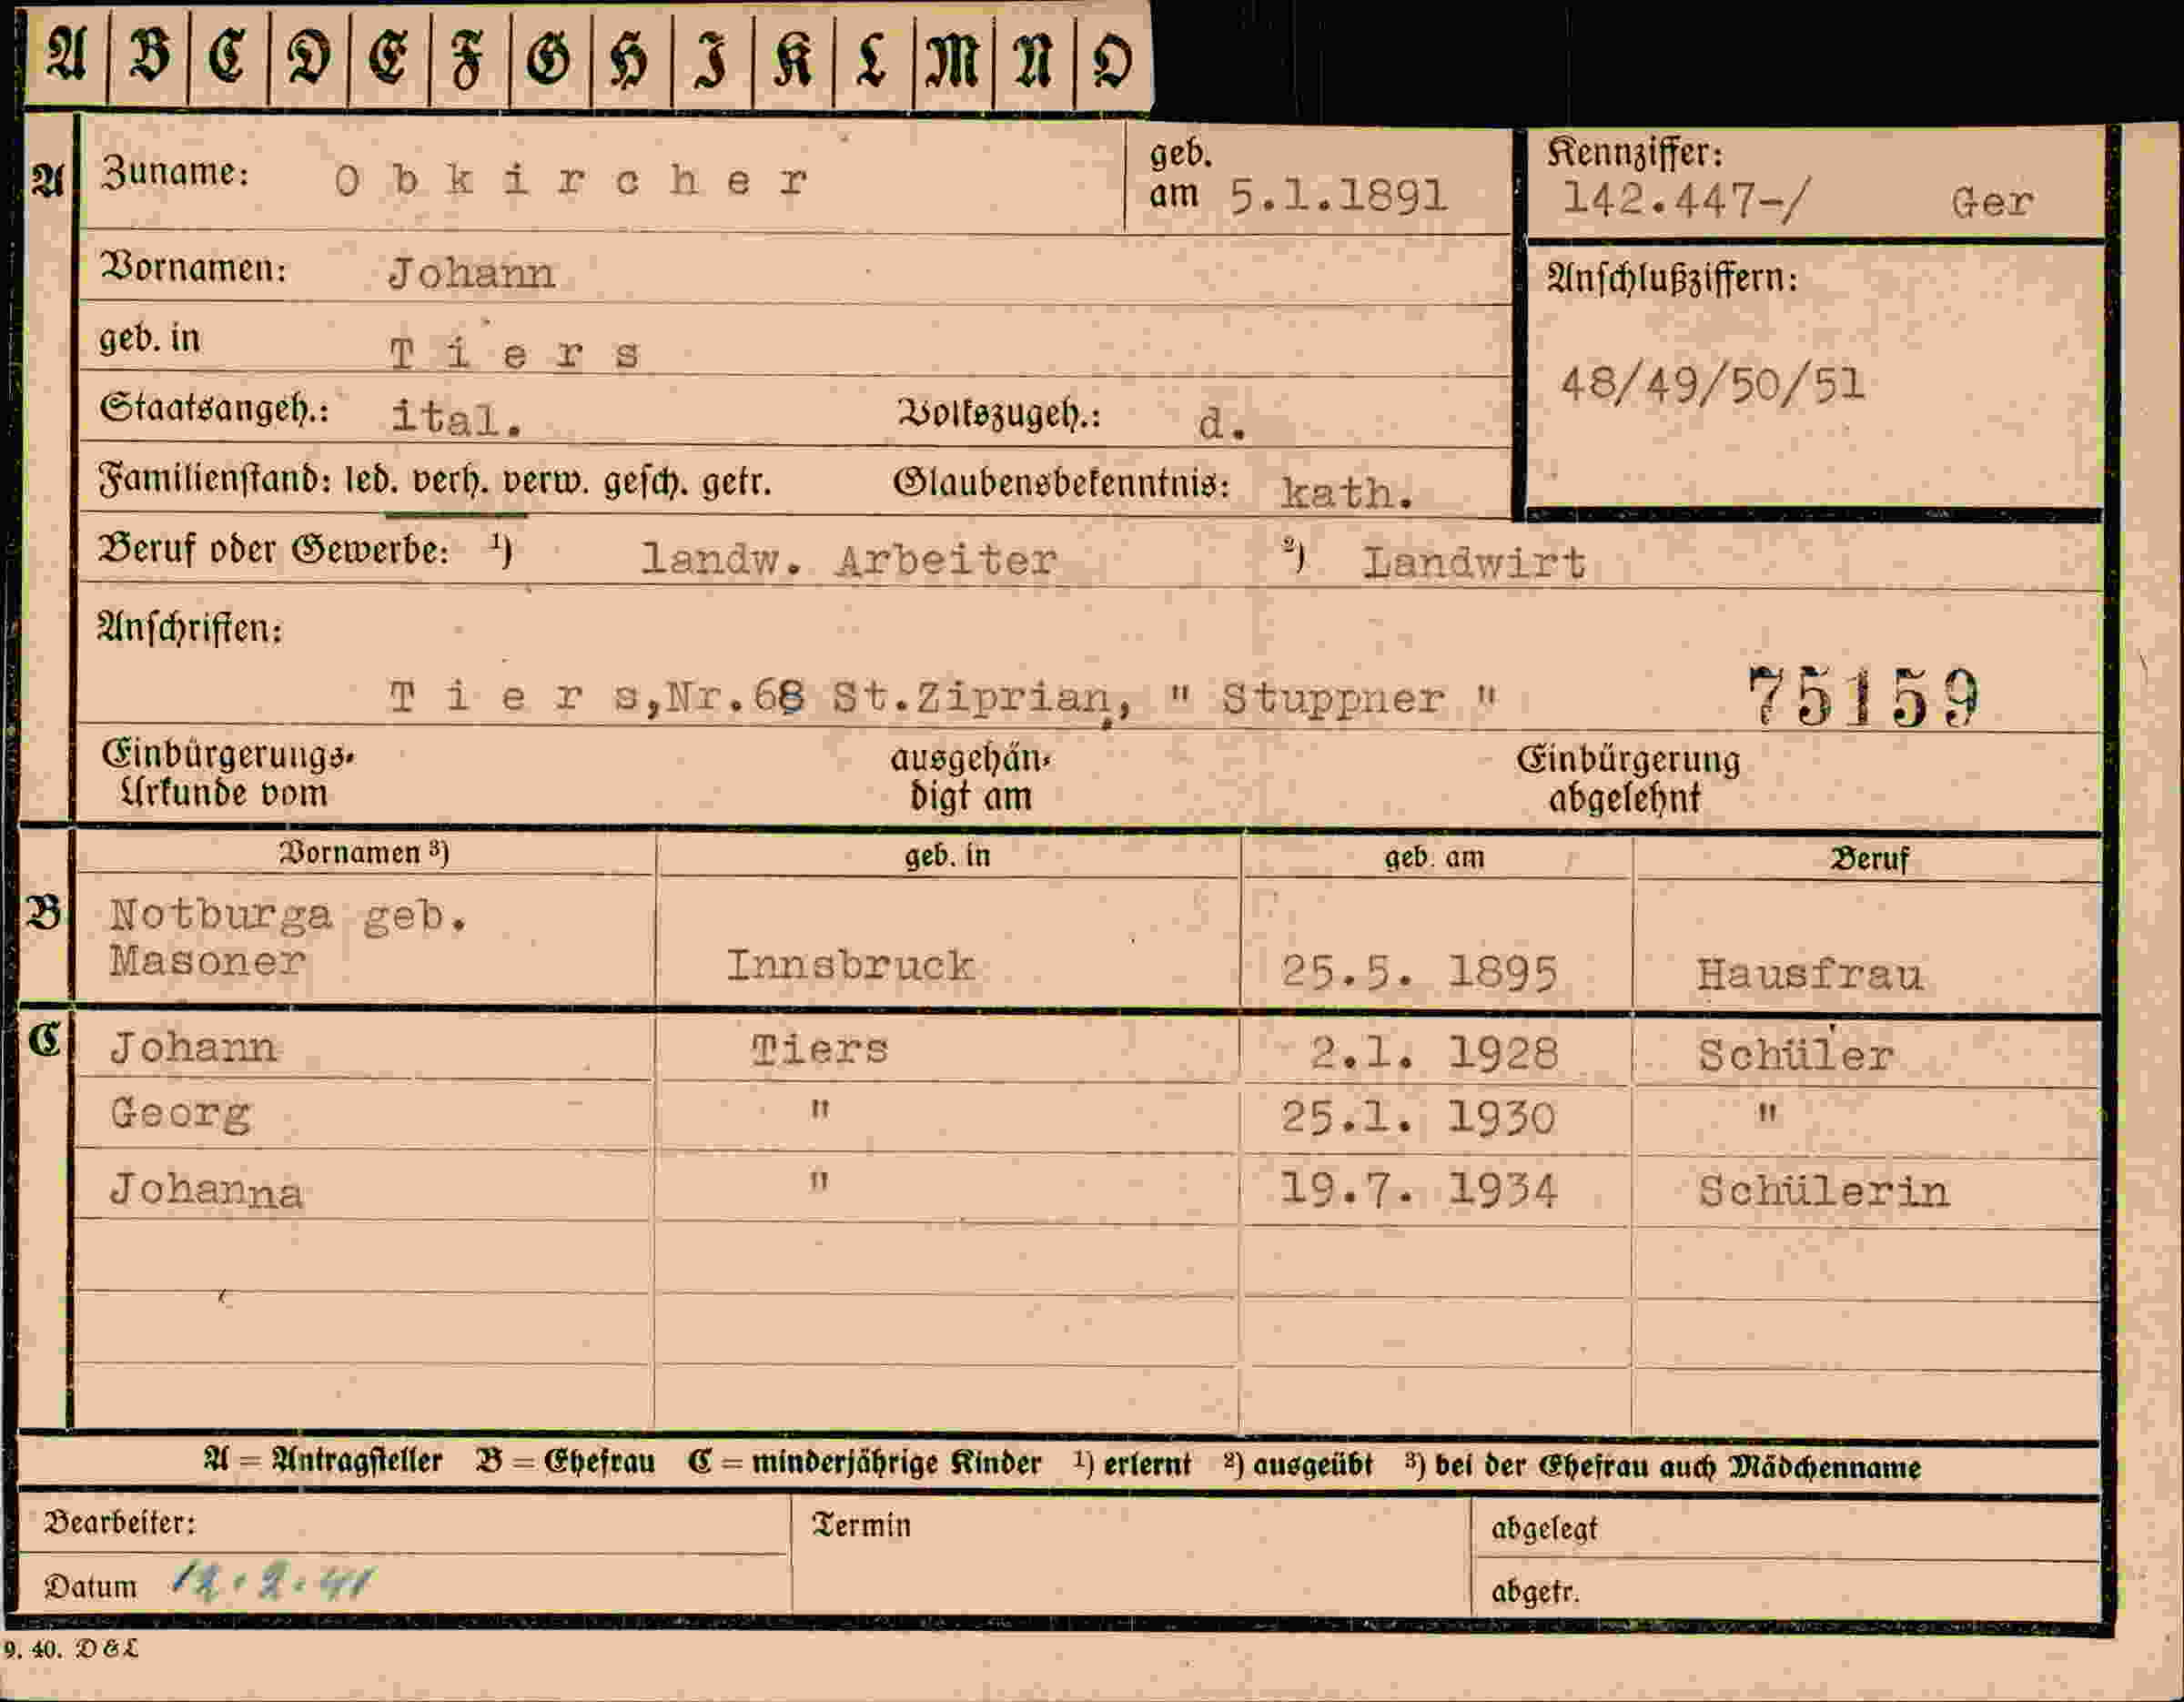 A B C D E F G H I K L M N O
A Zuname: O b k i r c h e r geb. am 5.1.1891 Kennziffer: 142.447-/ Ger
Vornamen: Johann Anschlußziffern:
geb. in T i e r s 48/49/50/51
Staatsangeh.: ital. Volkszugeh.: d.
Familienstand: led. verh. verw. gesch. getr. Glaubensbekenntnis: kath.
Beruf oder Gewerbe: ¹) landw. Arbeiter ²) Landwirt
Anschriften:
T i e r s,Nr.68 St.Ziprian, " Stuppner " 75159
Einbürgerungs- ausgehän- Einbürgerung
Urkunde vom digt am abgelehnt
Vornamen ³) geb. in geb. am Beruf
B Notburga geb.
Masoner Innsbruck 25.5. 1895 Hausfrau
C Johann Tiers 2.1. 1928 Schüler
Georg " 25.1. 1930 "
Johanna " 19.7. 1934 Schülerin
A = Antragsteller B = Ehefrau C = minderjährige Kinder ¹) erlernt ²) ausgeübt ³) bei der Ehefrau auch Mädchenname
Bearbeiter: Termin abgelegt
Datum 12.2.41 abgetr.
9. 40. D & L